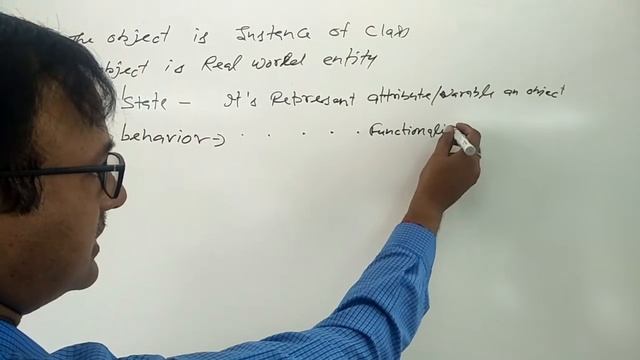 The object is Instence of Class
object is Real World entity
State - It's Represent attribute/variable an object
behavior → . . . . . Functionali